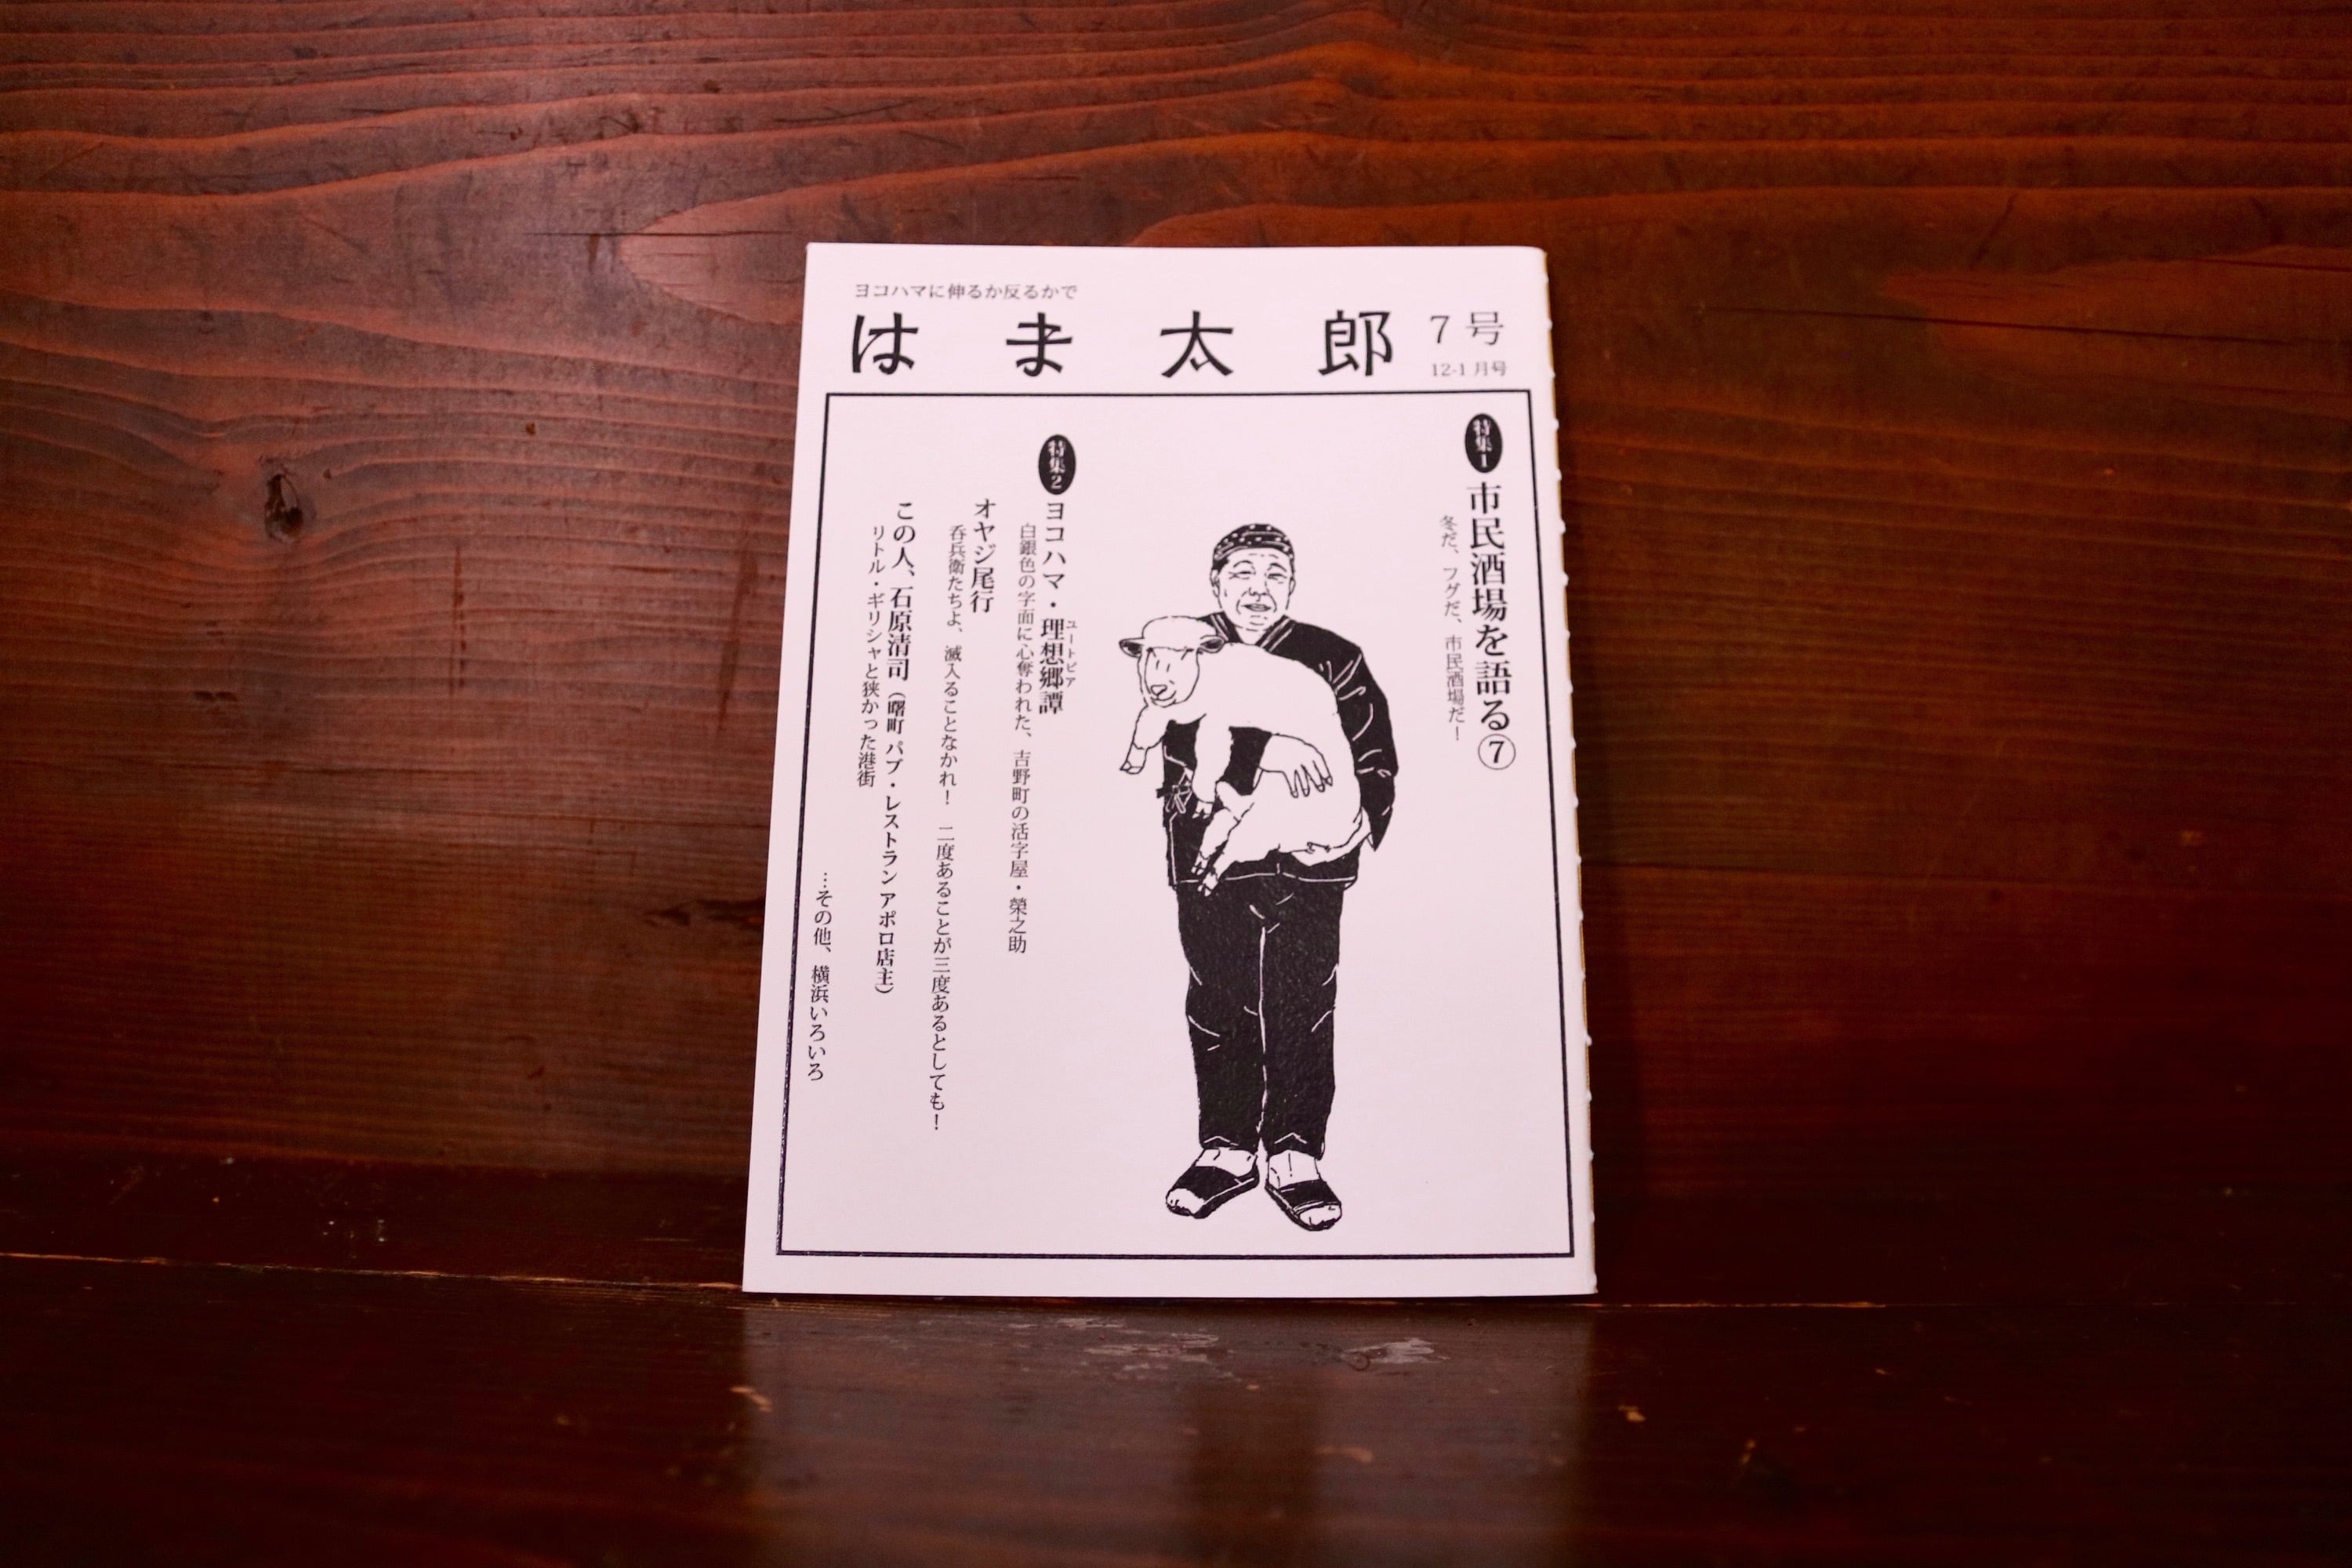 ヨコハマに伸るか反るかで
はま太郎
7号
12-1月号
特集1
市民酒場を語る⑦
冬だ、フグだ、市民酒場だ！
特集2
ヨコハマ・理想郷譚
ユートピア
白銀色の字面に心奪われた、吉野町の活字屋・榮之助
オヤジ尾行
呑兵衛たちよ、滅入ることなかれ！　二度あることが三度あるとしても！
この人、石原清司（曙町 パブ・レストラン アポロ店主）
リトル・ギリシャと狭かった港街
…その他、横浜いろいろ